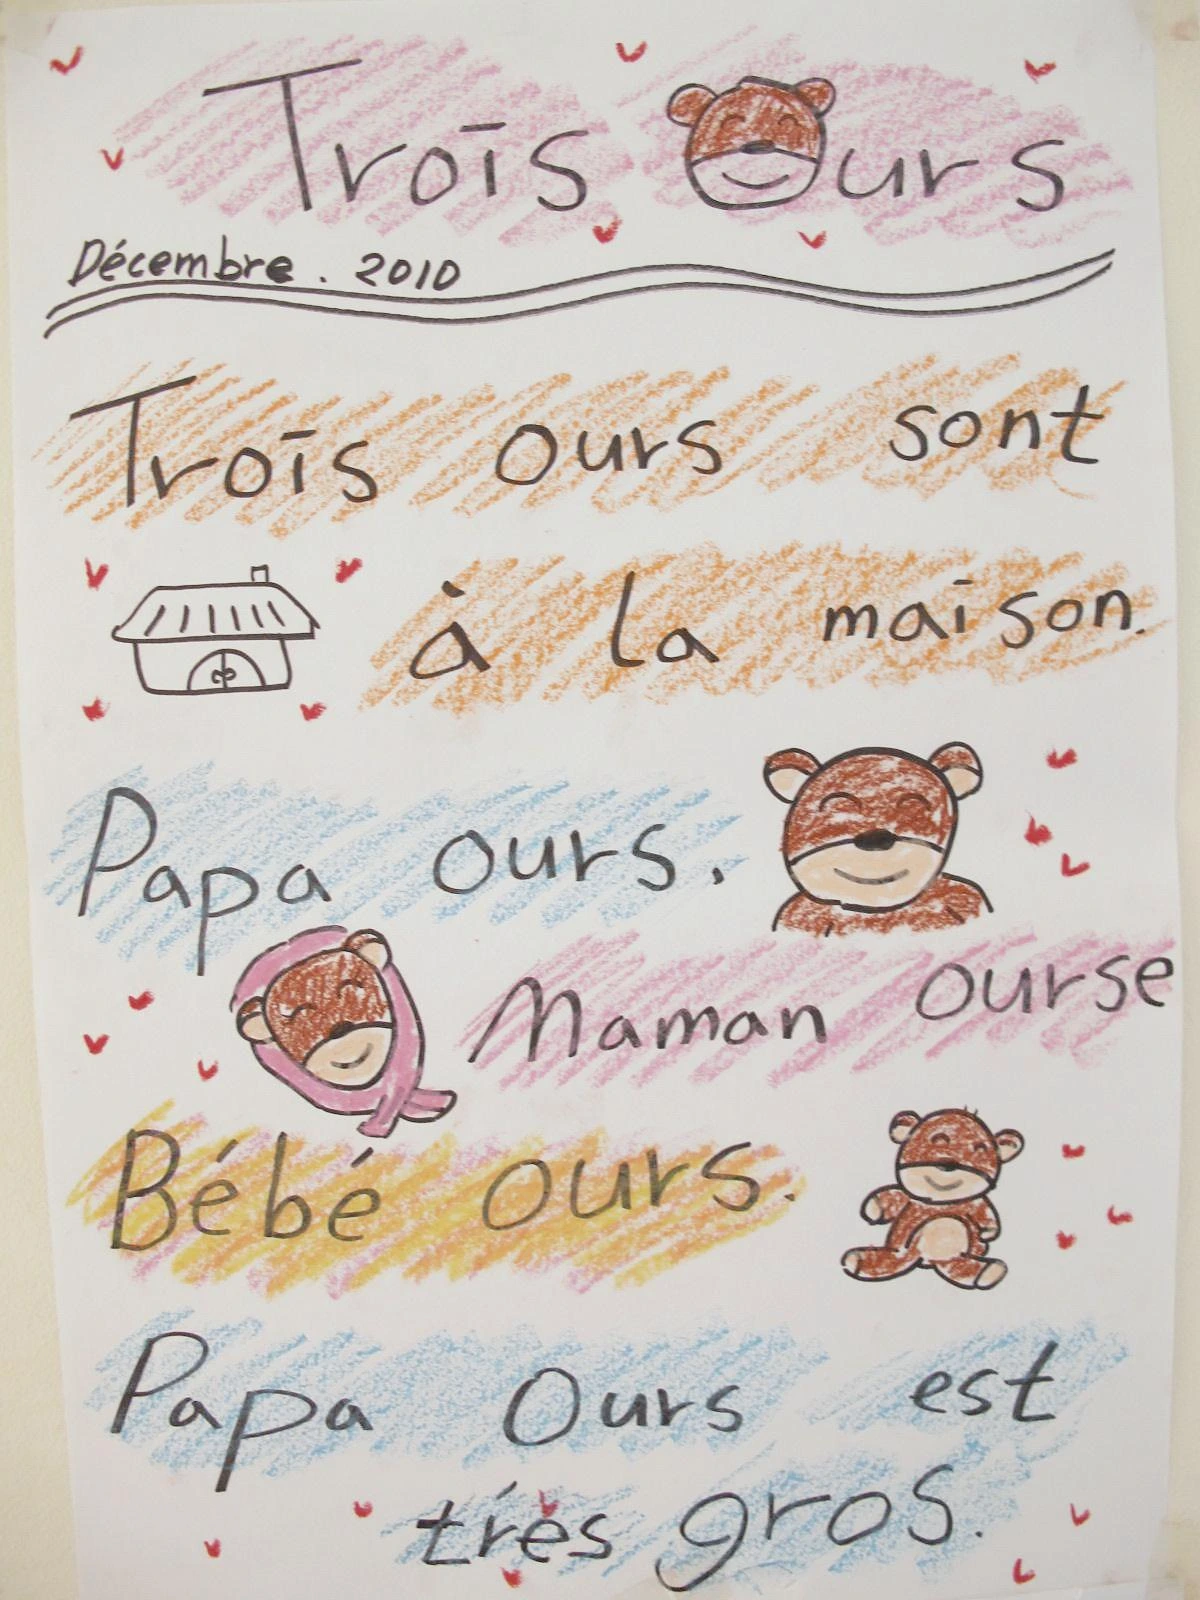 Trois Ours
Décembre. 2010
Trois ours sont
à la maison.
Papa ours.
Maman ourse
Bébé ours.
Papa Ours est
trés gros.